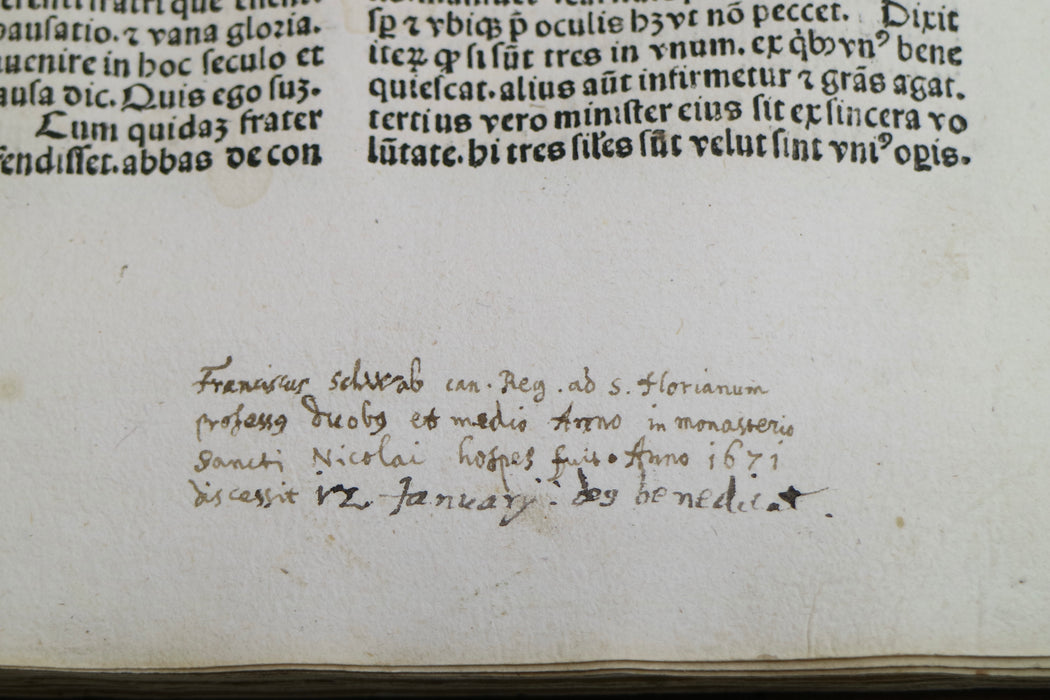 pausatio. ⁊ vana gloria.
uenire in hoc seculo et
ausa dic. Quis ego suʒ.
Cum quidaʒ frater
fendisset. abbas de con
oculis hʒ vt nō peccet. Dixit
iteꝝ ꝙ si sūt tres in vnum. ex q̇bꝰ vnꝰ bene
quiescat. alius aūt infirmetur ⁊ grās agat.
tertius vero minister eius sit ex sincera vo
lūtate. hi tres siłes sūt velut sint vniꝰ oꝑis.
Franciscus Schwab can. Reg. ad S. Florianum
professꝰ duobꝰ et medio Anno in monasterio
Sancti Nicolai hospes fuit. Anno 1671
discessit 12 Januarij. deꝰ benedicat.